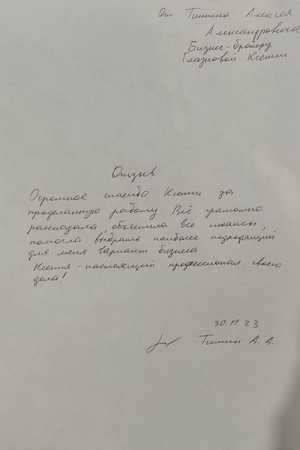 От Тишина Алексея
Александровича
Бизнес-брокеру
Глазковой Ксении
Отзыв
Огромное спасибо Ксении за
проделанную работу. Всё грамотно
рассказала, объяснила все нюансы,
помогла выбрать наиболее подходящий
для меня вариант бизнеса
Ксения - настоящий профессионал своего
дела!
30.11.23
Тишин А. А.